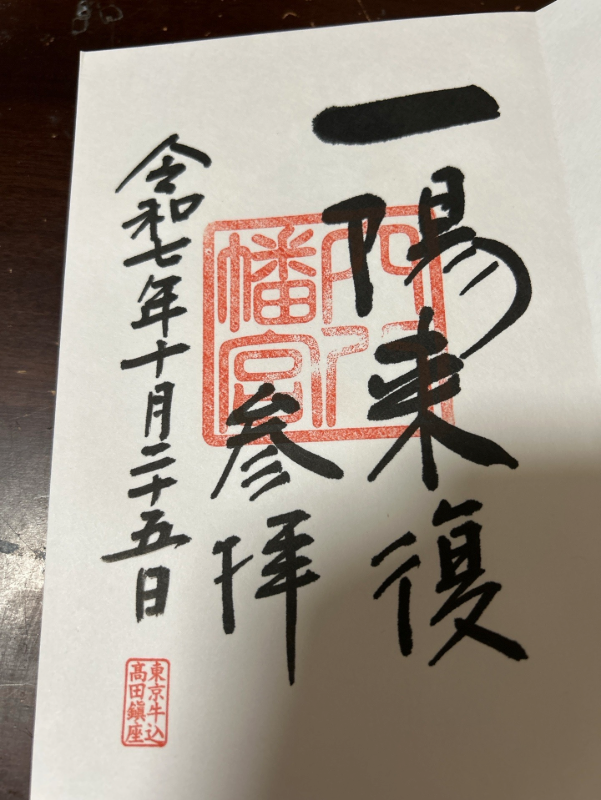 一陽来復
穴八
幡宮
参拝
令和七年十月二十五日
東京牛込
髙田鎭座